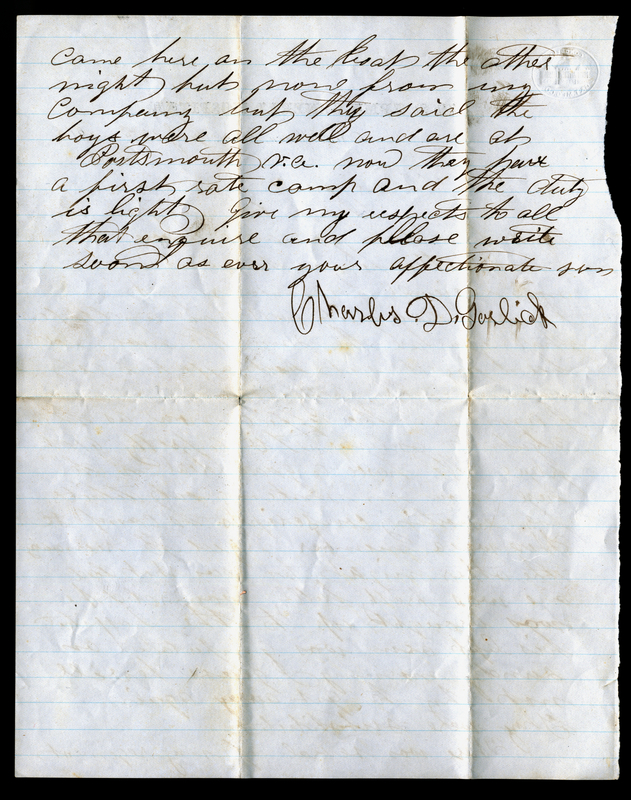 came here on the boat the other
night but none from my
Company but they said the
boys were all well and are at
Portsmouth v.a. now they have
a first rate camp and the duty
is light Give my respects to all
that enquire and please write
soon as ever your affectionate son
Charles D. Garlick